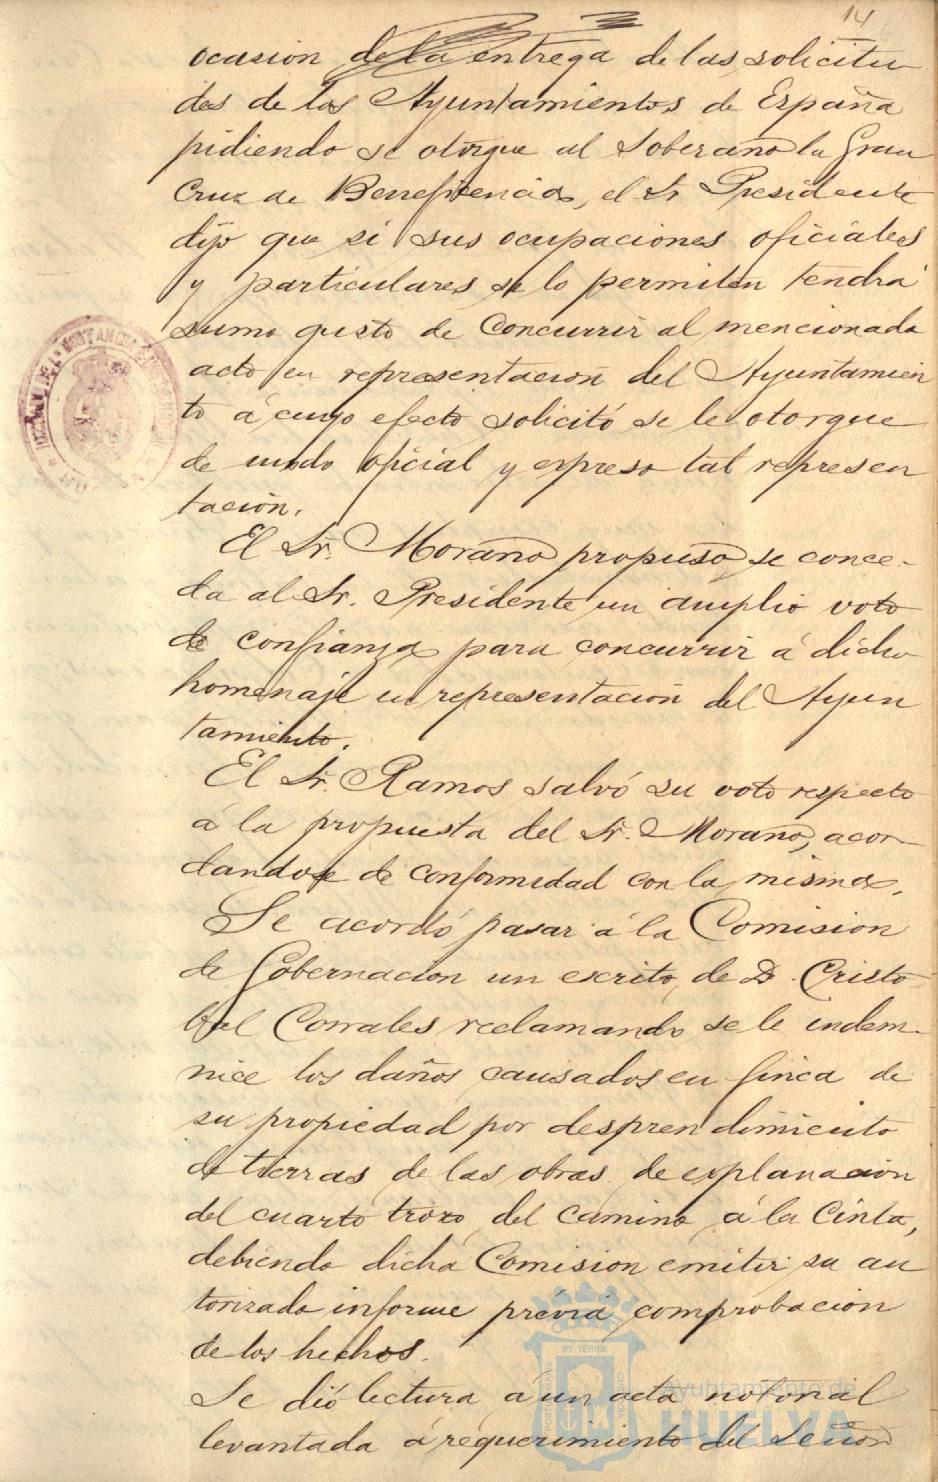 14
ocasion de la entrega de las solicitu
des de los Ayuntamientos de España
pidiendo se otorgue al Soberano la Gran
Cruz de Beneficencia, el Sr Presidente
dijo que si sus ocupaciones oficiales
y particulares se lo permiten tendrá
sumo gusto de concurrir al mencionado
acto en representacion del Ayuntamien
to á cuyo efecto solicitó se le otorgue
de modo oficial y expreso tal represen
tación.
El Sr. Morano propuso se conce-
da al Sr. Presidente un amplio voto
de confianza para concurrir á dicho
homenaje en representación del Ayun
tamiento.
El Sr. Ramos salvó su voto respecto
á la propuesta del Sr. Morano, acor-
dandose de conformidad con la misma.
Se acordó pasar á la Comision
de Gobernacion un escrito de D. Cristo-
bal Corrales reclamando se le indem-
nice los daños causados en finca de
su propiedad por desprendimiento
de tierras de las obras de explanacion
del cuarto trozo del camino á la Cinta,
debiendo dicha Comision emitir su au
torizado informe prévia comprobacion
de los hechos.
Se dió lectura á un acta notorial
levantada á requerimiento del Señor
Ayuntamiento de
HUELVA